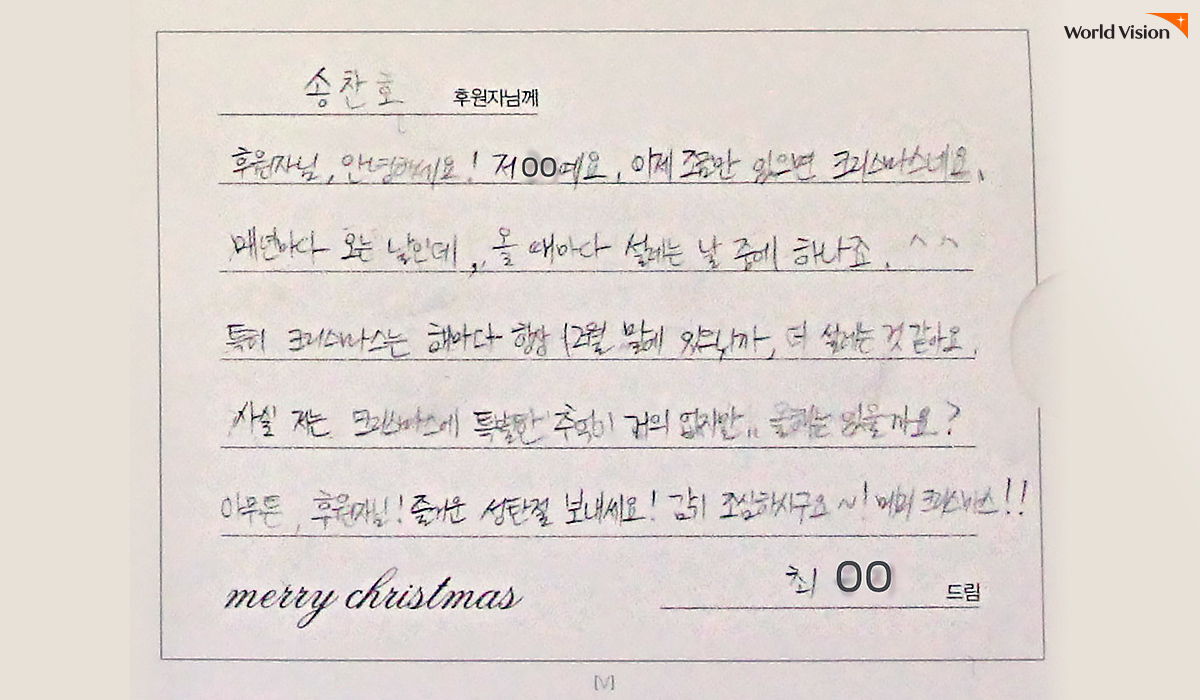 World Vision
송찬호 후원자님께
후원자님, 안녕하세요! 저00예요. 이제 조금만 있으면 크리스마스네요.
매년마다 오는 날인데,, 올 때마다 설레는 날 중에 하나죠. ^^
특히 크리스마스는 해마다 항상 12월 말에 있으니까, 더 설레는 것 같아요.
사실 저는 크리스마스에 특별한 추억이 거의 없지만.. 올해는 있을까요?
아무튼, 후원자님! 즐거운 성탄절 보내세요! 감기 조심하시구요~! 메리 크리스마스!!
merry christmas 최 00 드림
[V]